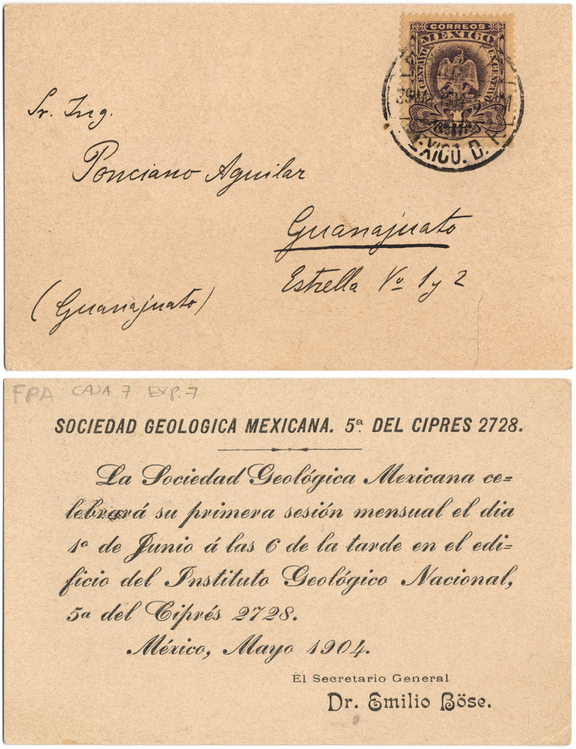 CORREOS
MEXICO
UN CENTAVO UN CENTAVO
MEXICO. D. F.
Sr. Ing.
Ponciano Aguilar
Guanajuato
Estrella Nº 1 y 2
(Guanajuato)
FPA CAJA 7 EXP. 7
SOCIEDAD GEOLOGICA MEXICANA. 5ª DEL CIPRES 2728.
La Sociedad Geológica Mexicana ce=
lebrará su primera sesión mensual el dia
1º de Junio á las 6 de la tarde en el edi=
ficio del Instituto Geológico Nacional,
5a del Ciprés 2728.
México, Mayo 1904.
El Secretario General
Dr. Emilio Böse.